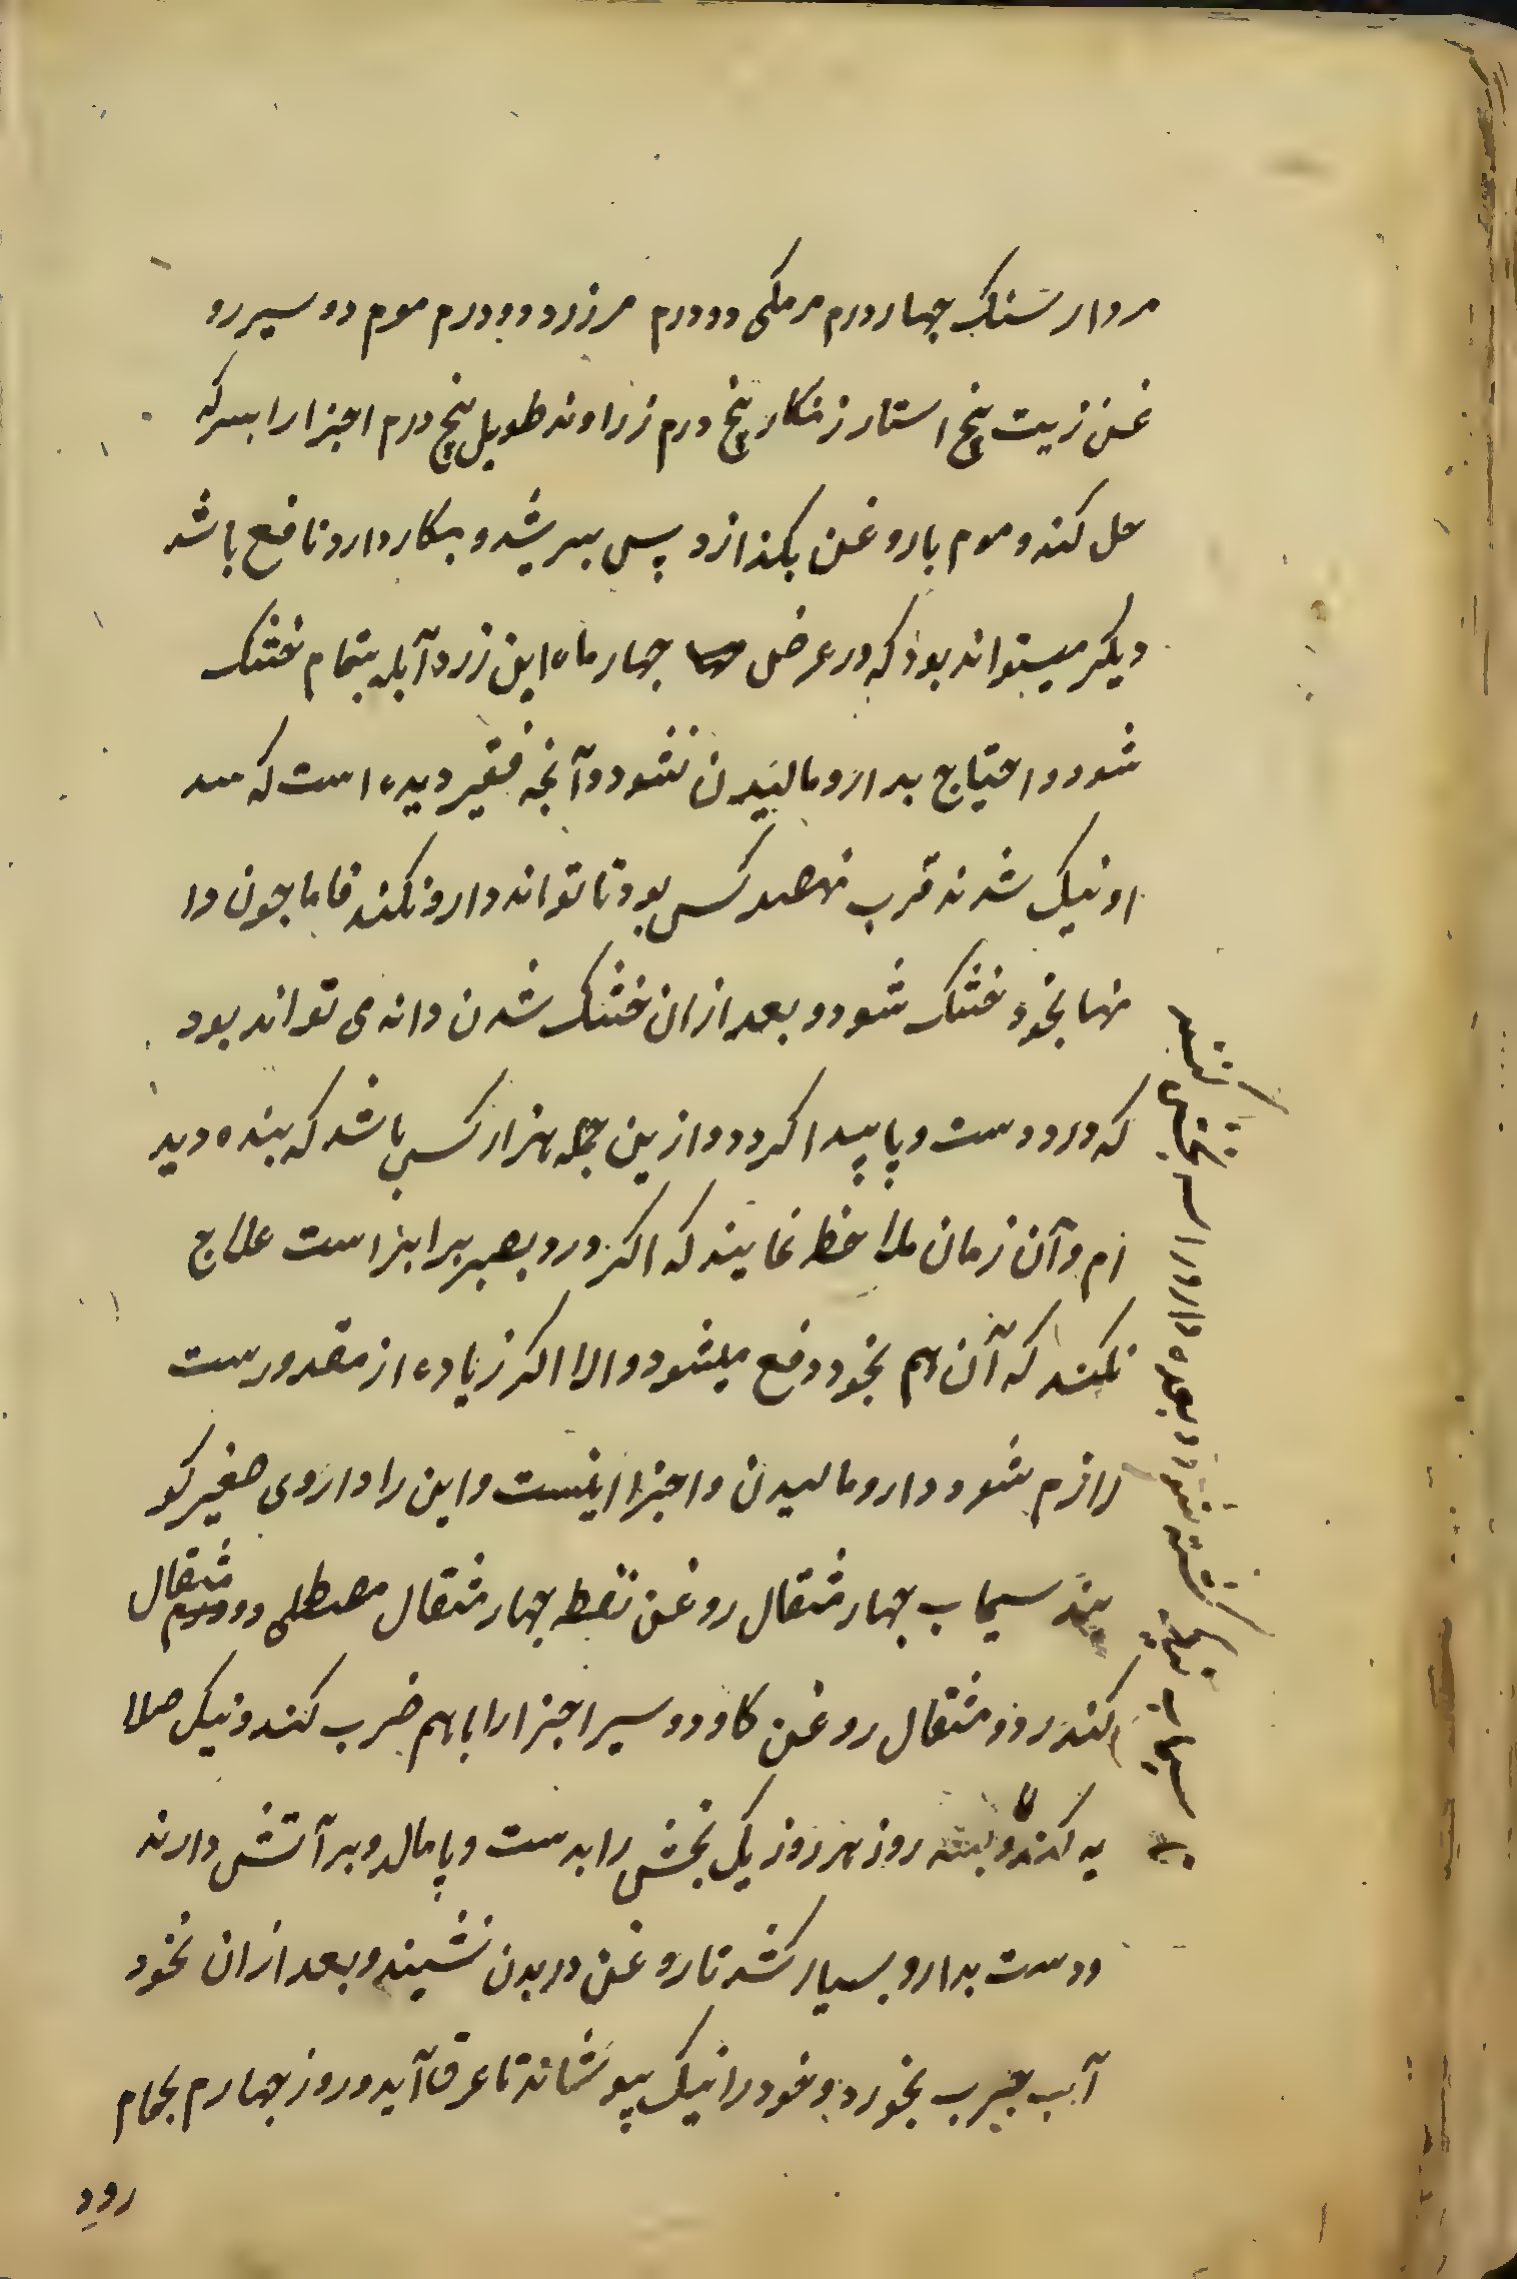 مردار سنک چهار درم مرمکی دو درم مرزرد دو درم موم دو سیر رو
غن زیت پنج استار زنکار پنج درم زراوند طویل پنج درم اجزا را بسرکه
حل کند و موم با روغن بکذازد پس بسریشد و بکار دارد نافع باشد
دیکر میتواند بود که در عرض چهار ماه این زرد آبله بتمام خشک
شود و احتیاج بدارو مالیدن نشود و آنچه فقیر دیده است که
او نیک شدند قرب نهصد کس بود تا تواند دارو نکند فاما چون دا
نها بخود خشک شود و بعد ازان خشک شدن دانه می تواند بود
که درد دست و پا پیدا کردد و ازین جمله هزار کس باشد که بنده دید
ام و آن زمان ملاحظه نمایند که اکر درد بصبر برابر است علاج
نکند که آن هم بخود دفع میشود و الا اکر زیاده از مقدورست
لازم شود دارو مالیدن و اجزا اینست و این را داروی صغیر کو
یند سیماب چهار مثقال روغن نفط چهار مثقال مصطکی دو مثقال
کندر دو مثقال روغن کاو دو سیر اجزا را باهم ضرب کند و نیک صلا
یه کند و بسه روز هر روز یک بخش را بدست و پا مالد و بر آتش دارند
و دست بدارو بسیار کشد تا روغن در بدن نشیند و بعد ازان نخود
آب چرب بخورد و خود را نیک بپوشاند تا عرق آید و روز چهارم بحمام
رود
سیماب کشته شود و بعده دارو را